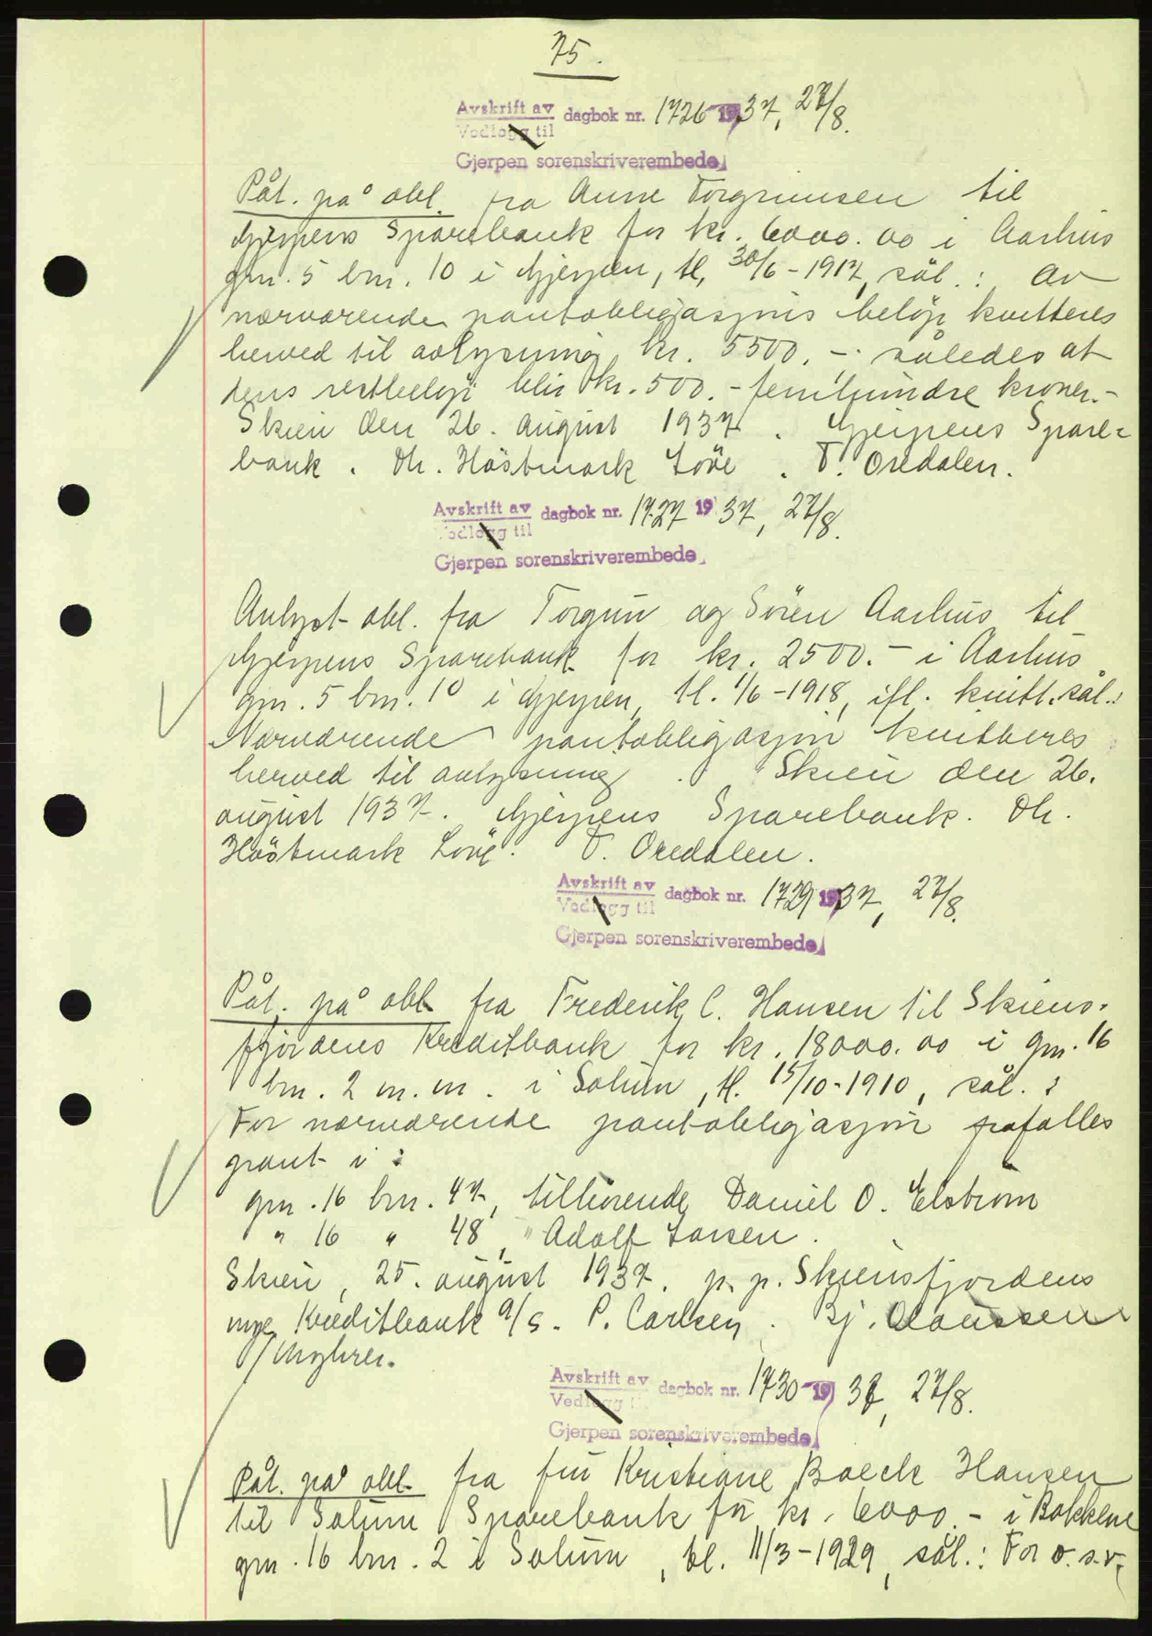 75.
Avskrift av dagbok nr. 1726 1937, 27/8.
Vedlegg til
Gjerpen sorenskriverembede
Påt. på obl. fra Anne Torgrimsen til
Gjerpens Sparebank for kr. 6000.00 i Aarhus
gnr. 5 bnr. 10 i Gjerpen, tl. 30/6-1917, sål.: Av
nærværende pantobligasjons beløp kvitteres
herved til avlysning kr. 5500.- således at
dens restbeløp blir kr. 500.- femhundre kroner.-
Skien den 26. august 1937. Gjerpens Spare=
bank. Chr. Höstmark Löve. T. Oredalen.
Avskrift av dagbok nr. 1727 1937, 27/8.
Vedlegg til
Gjerpen sorenskriverembede
Avlyst obl. fra Torgun og Sören Aarhus til
Gjerpens Sparebank for kr. 2500.- i Aarhus
gnr. 5 bnr. 10 i Gjerpen, tl. 1/6-1918, ifl. kvitt. sål.:
Nærværende pantobligasjon kvitteres
herved til avlysning. Skien den 26.
august 1937. Gjerpens Sparebank. Chr.
Höstmark Löve. T. Oredalen.
Avskrift av dagbok nr. 1729 1937, 27/8.
Vedlegg til
Gjerpen sorenskriverembede
Påt. på obl. fra Frederik C. Hansen til Skiens-
fjordens Kreditbank for kr. 18000.00 i gnr. 16
bnr. 2 m.m. i Solum, tl. 15/10-1910, sål.:
For nærværende pantobligasjon frafalles
pant i:
gnr. 16 bnr. 47, tilhørende Daniel O. Elstrøm
" 16 " 48, " Adolf Larsen.
Skien, 25. august 1937. p.p. Skiensfjordens
nye Kreditbank A/S. P. Carlsen. Bj. Claussen
/Myhrer.
Avskrift av dagbok nr. 1730 1937, 27/8.
Vedlegg til
Gjerpen sorenskriverembede
Påt. på obl. fra fru Kristiane Boeck Hansen
til Solum Sparebank for kr. 6000.- i Bakkene
gnr. 16 bnr. 2 i Solum, tl. 11/3-1929, sål.: For o.s.v.